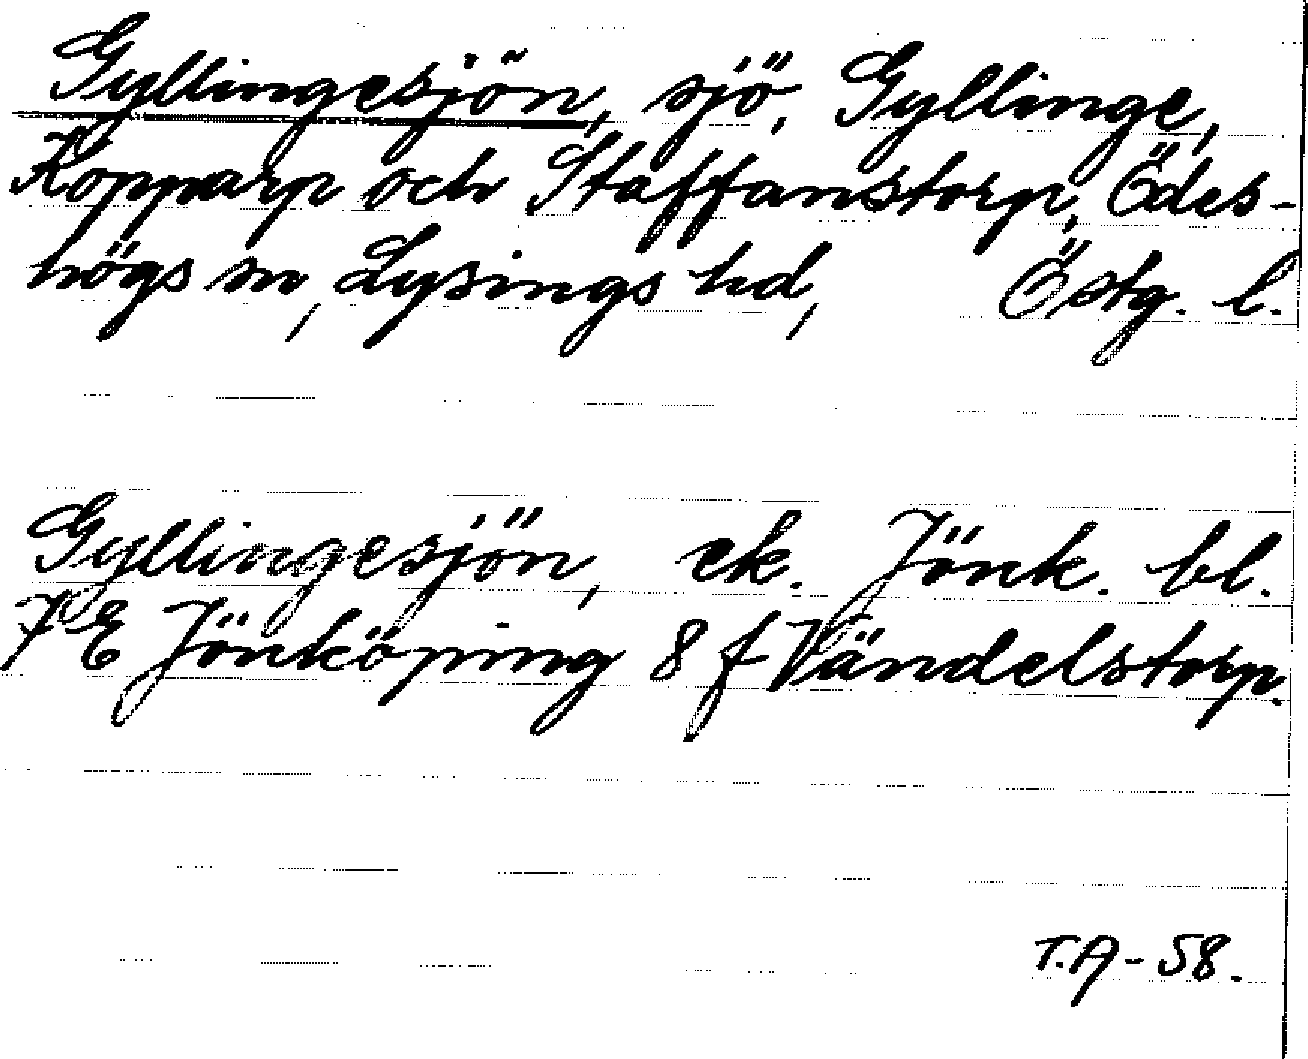 Gyllingesjön, sjö, Gyllinge,
Kopparp och Staffanstorp, Ödes-
högs sn, Lysings hd, Östg. l.
Gyllingesjön, ek. Jönk. bl.
7 E Jönköping 8 f Vändelstorp.
T.A-58.